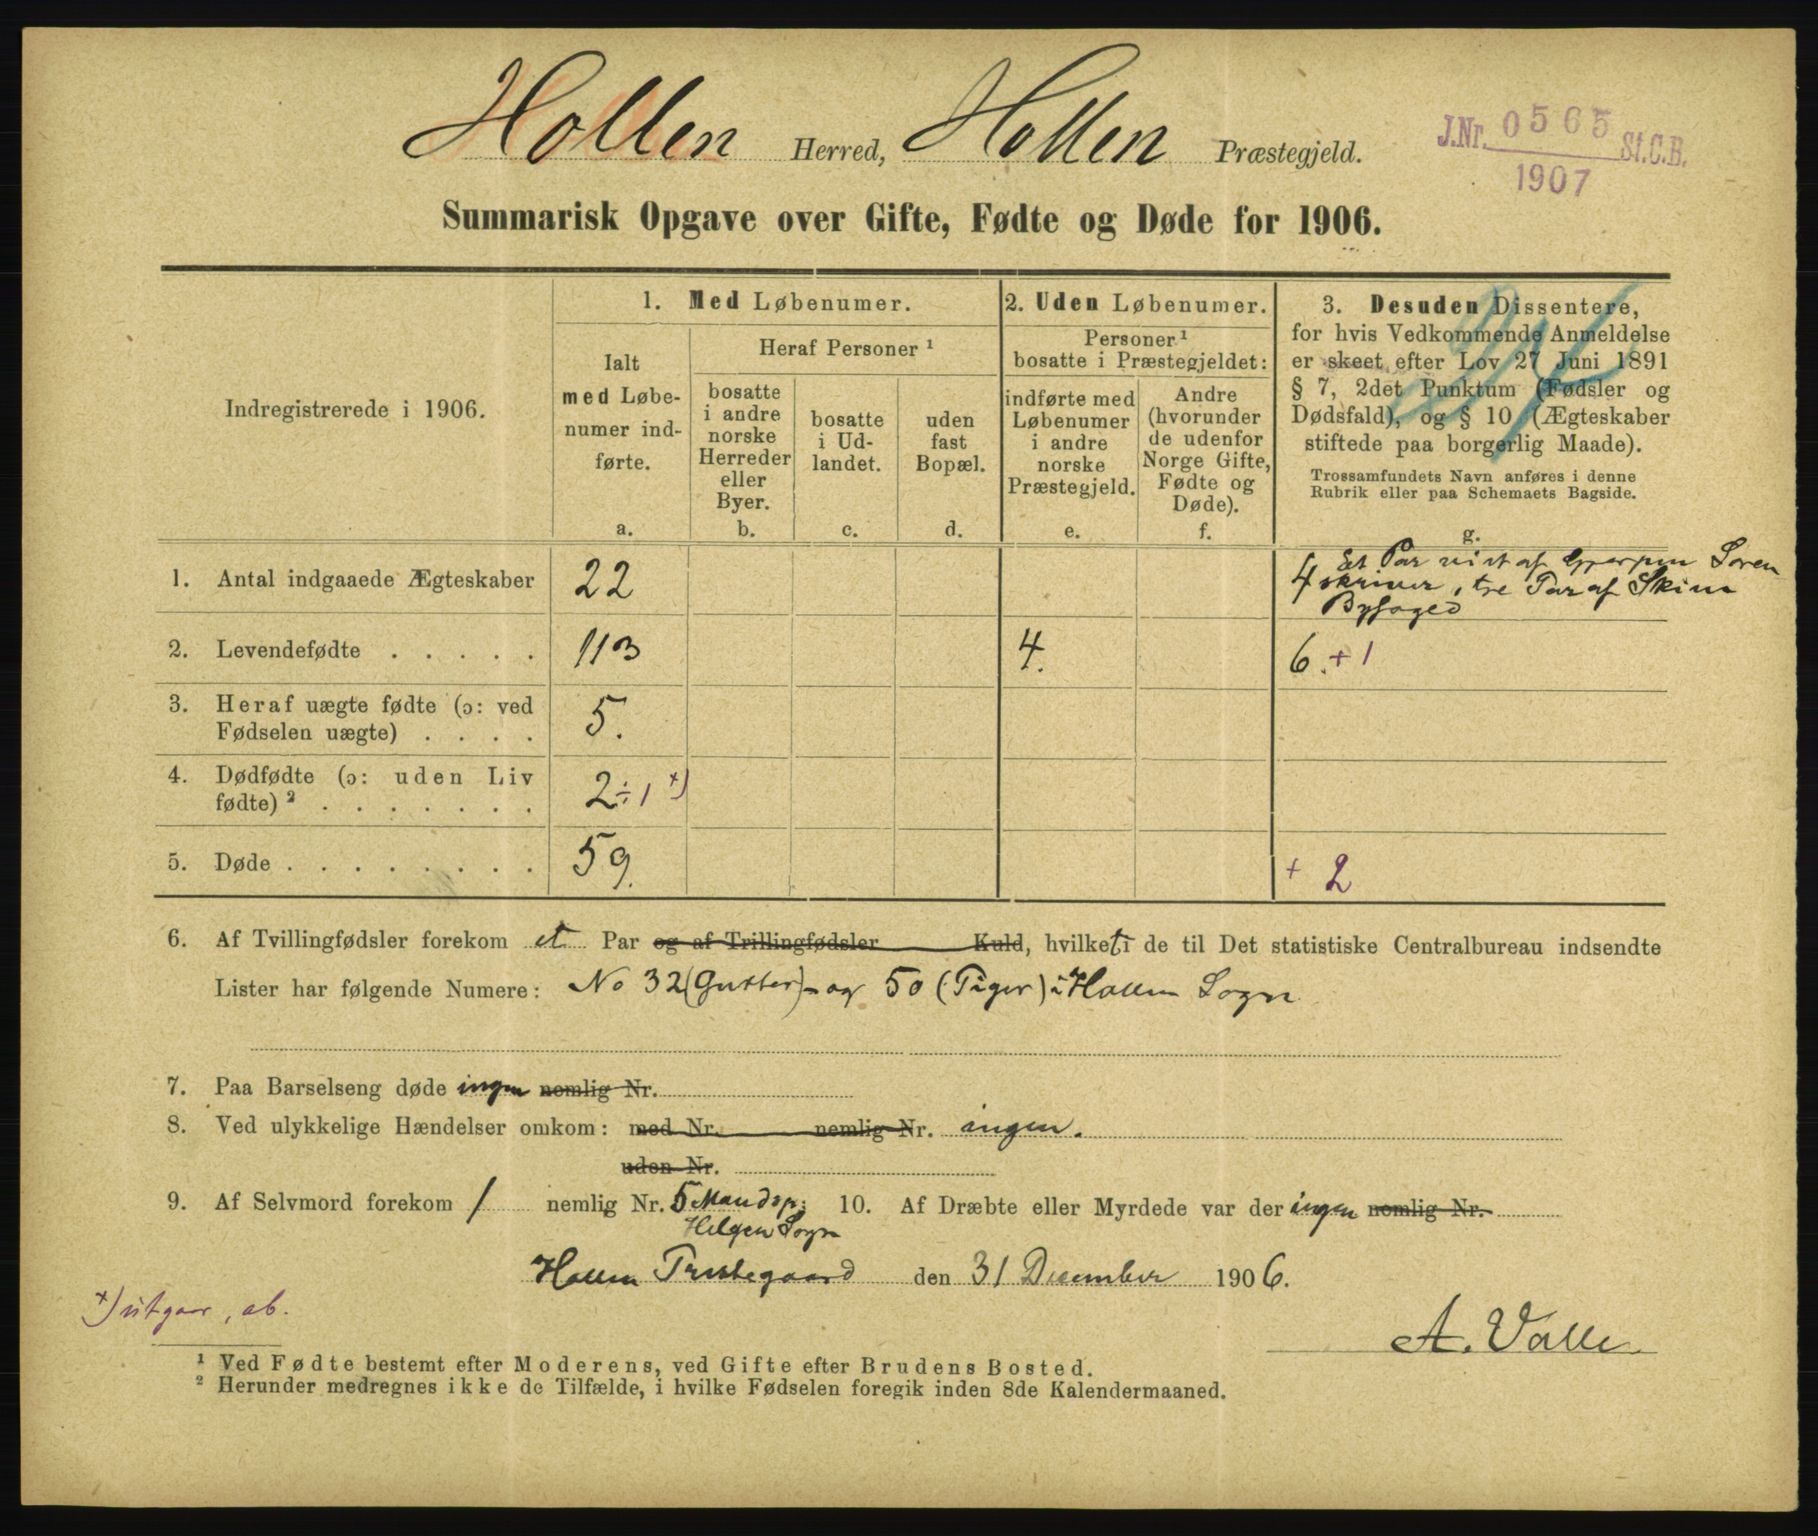 Hollen Herred, Hollen Præstegjeld.
J.Nr. 0565 St.C.B.
1907
Summarisk Opgave over Gifte, Fødte og Døde for 1906.
Indregistrerede i 1906.
1. Med Løbenumer.
Ialt
med Løbe-
numer ind-
førte.
a.
Heraf Personer ¹
bosatte
i andre
norske
Herreder
eller
Byer.
b.
bosatte
i Ud-
landet.
c.
uden
fast
Bopæl.
d.
2. Uden Løbenumer.
Personer ¹
bosatte i Præstegjeldet:
indførte med
Løbenumer
i andre
norske
Præstegjeld.
e.
Andre
(hvorunder
de udenfor
Norge Gifte,
Fødte og
Døde).
f.
3. Desuden Dissentere,
for hvis Vedkommende Anmeldelse
er skeet efter Lov 27 Juni 1891
§ 7, 2det Punktum (Fødsler og
Dødsfald), og § 10 (Ægteskaber
stiftede paa borgerlig Maade).
Trossamfundets Navn anføres i denne
Rubrik eller paa Schemaets Bagside.
g.
1. Antal indgaaede Ægteskaber 22
Et Par viet af Gjerpen Soren
4 skriver, tre Par af Skien
Byfoged
2. Levendefødte . . . . . 113 4. 6. + 1
3. Heraf uægte fødte (ɔ: ved
Fødselen uægte) . . . . 5.
4. Dødfødte (ɔ: uden Liv
fødte) ² . . . . . . . 2 ÷ 1 +)
5. Døde . . . . . . . . 59. + 2
6. Af Tvillingfødsler forekom et Par og af Trillingfødsler Kuld, hvilket i de til Det statistiske Centralbureau indsendte
Lister har følgende Numere: No 32 (Gutter) - og 50 (Piger) i Hollen Sogn
7. Paa Barselseng døde ingen nemlig Nr.
8. Ved ulykkelige Hændelser omkom: med Nr. nemlig Nr. ingen.
uden Nr.
9. Af Selvmord forekom 1 nemlig Nr. 5 Mandsp: 10. Af Dræbte eller Myrdede var der ingen nemlig Nr.
Helgen Sogn
Hollen Prestegaard den 31 December 1906.
+) utgaar, ab.
A. Valle.
¹ Ved Fødte bestemt efter Moderens, ved Gifte efter Brudens Bosted.
² Herunder medregnes ikke de Tilfælde, i hvilke Fødselen foregik inden 8de Kalendermaaned.